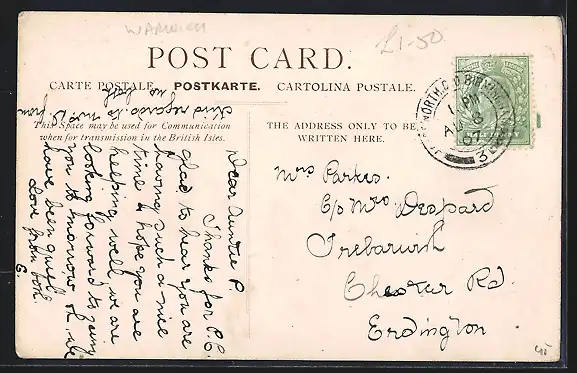 WARWICK
£1-50
POST CARD.
CARTE POSTALE. POSTKARTE. CARTOLINA POSTALE.
This Space may be used for Communication
when for transmission in the British Isles.
THE ADDRESS ONLY TO BE
WRITTEN HERE.
Dear Auntie P
Thanks for P.C.
glad to hear you are
having such a nice
time & hope you are
keeping well we are
looking forward to seeing
you to morrow
have been quiet
Love from both
E.
kind regards to Mr W. from
Mrs Parkes.
C/o Mrs Despard
Trebarwith
Chester Rd.
Erdington
1 PM
AU 6